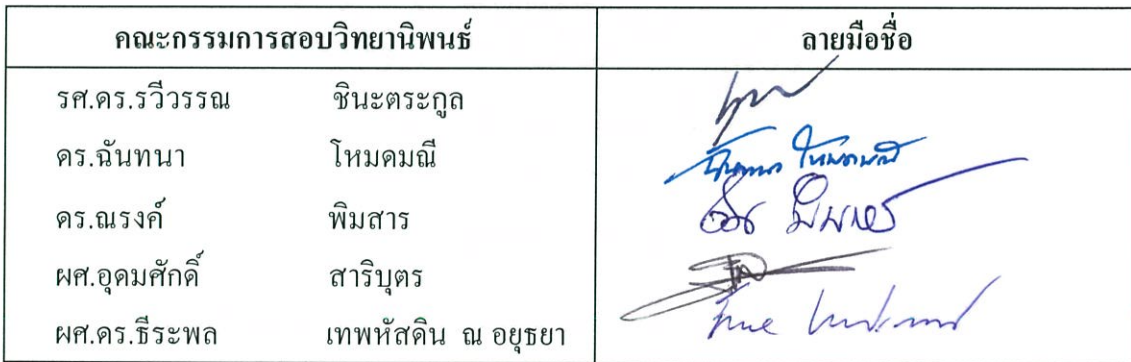 คณะกรรมการสอบวิทยานิพนธ์ ลายมือชื่อ
รศ.ดร.รวีวรรณ ชินะตระกูล
ดร.ฉันทนา โหมดมณี
ดร.ณรงค์ พิมสาร
ผศ.อุดมศักดิ์ สาริบุตร
ผศ.ดร.ธีระพล เทพหัสดิน ณ อยุธยา